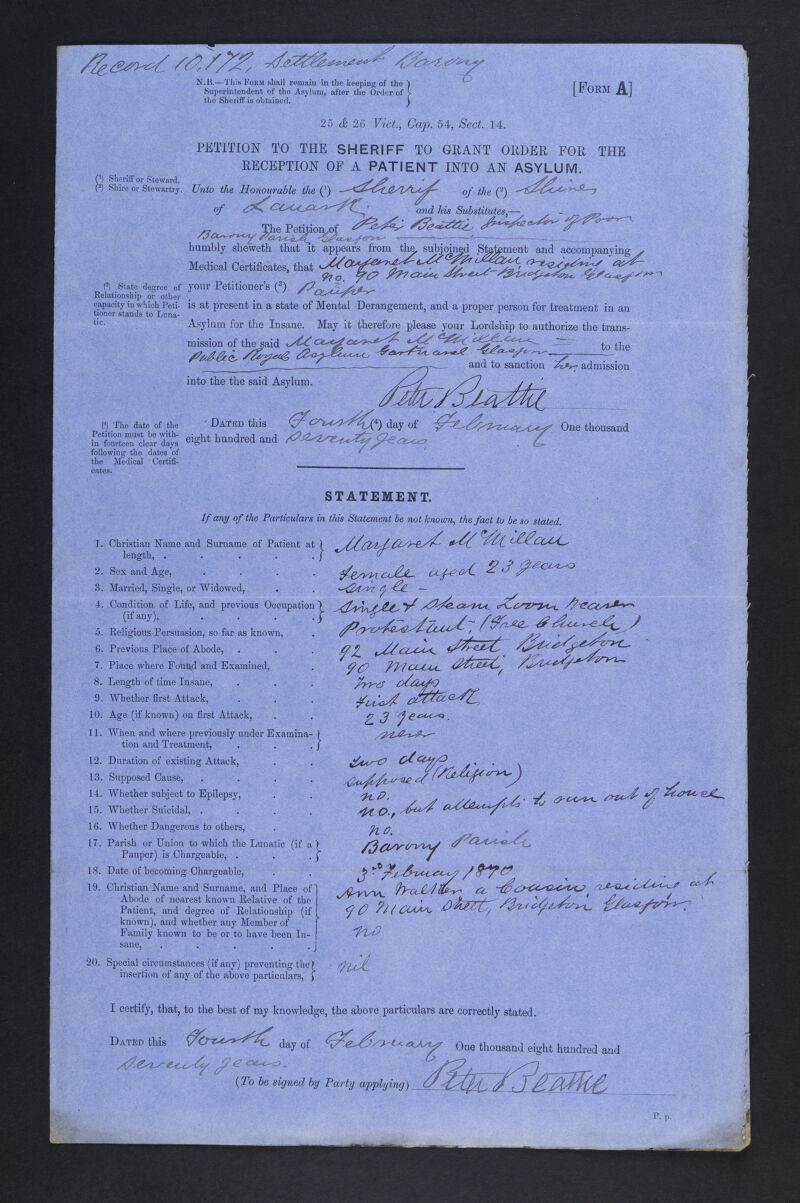 Record 10.172. Settlement Barony
N.B.—This Form shall remain in the keeping of the
Superintendent of the Asylum, after the Order of
the Sheriff is obtained.
[Form A]
25 & 26 Vict., Cap. 54, Sect. 14.
PETITION TO THE SHERIFF TO GRANT ORDER FOR THE
RECEPTION OF A PATIENT INTO AN ASYLUM.
(¹) Sheriff or Steward.
(²) Shire or Stewartry.
Unto the Honourable the (¹) Sherrif of the (²) Shires
of Lanark and his Substitutes,—
The Petition of Peter Beattie Inspector of Poor
Barony Parish Glasgow
humbly sheweth that it appears from the subjoined Statement and accompanying
Medical Certificates, that Margaret McMillan residing at
No. 90 Main Street Bridgeton Glasgow
(³) State degree of
Relationship or other
capacity in which Peti-
tioner stands to Luna-
tic.
your Petitioner's (³) Pauper
is at present in a state of Mental Derangement, and a proper person for treatment in an
Asylum for the Insane. May it therefore please your Lordship to authorize the trans-
mission of the said Margaret McMillan to the
Public Royal Asylum Gartnavel Glasgow
and to sanction her admission
into the the said Asylum.
Peter Beattie
(⁴) The date of the
Petition must be with-
in fourteen clear days
following the dates of
the Medical Certifi-
cates.
Dated this Fourth (⁴) day of February One thousand
eight hundred and seventy years
STATEMENT.
If any of the Particulars in this Statement be not known, the fact to be so stated.
1. Christian Name and Surname of Patient at
length, . Margaret McMillan
2. Sex and Age, Female aged 23 years
3. Married, Single, or Widowed, Single -
4. Condition of Life, and previous Occupation
(if any), Single & Steam Loom Weaver
5. Religious Persuasion, so far as known, Protestant, (Free Church)
6. Previous Place of Abode, 92 Main Street, Bridgeton
7. Place where Found and Examined, 90 Main Street, Bridgeton
8. Length of time Insane, Two days
9. Whether first Attack, First attack
10. Age (if known) on first Attack, 23 years.
11. When and where previously under Examina-
tion and Treatment, never
12. Duration of existing Attack, two days
13. Supposed Cause, supposed (Religion)
14. Whether subject to Epilepsy, no.
15. Whether Suicidal, no., but attempts to run out of house
16. Whether Dangerous to others, no.
17. Parish or Union to which the Lunatic (if a
Pauper) is Chargeable, Barony Parish
18. Date of becoming Chargeable, 3rd February 1870
19. Christian Name and Surname, and Place of
Abode of nearest known Relative of the
Patient, and degree of Relationship (if
known), and whether any Member of
Family known to be or to have been In-
sane, Ann a Cousin, residing at
90 Main Street, Bridgeton Glasgow
no
20. Special circumstances (if any) preventing the
insertion of any of the above particulars, nil
I certify, that, to the best of my knowledge, the above particulars are correctly stated.
Dated this Fourth day of February One thousand eight hundred and
seventy years.
(To be signed by Party applying) Peter Beattie
P. p.